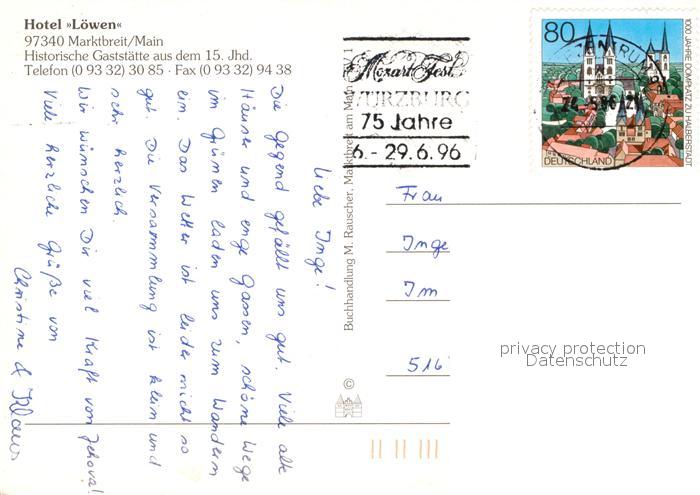 Hotel »Löwen«
97340 Marktbreit/Main
Historische Gaststätte aus dem 15. Jhd.
Telefon (0 93 32) 30 85 · Fax (0 93 32) 94 38
Liebe Inge!
Die Gegend gefällt uns gut. Viele alte
Häuser und enge Gassen, schöne Wege
im Grünen laden uns zum Wandern
ein. Das Wetter ist leider nicht so
gut. Die Versammlung ist klein und
sehr herzlich.
Wir wünschen Dir viel Kraft von Jehova!
Viele herzliche Grüße von
Christine & Klaus
Buchhandlung M. Rauscher, Marktbreit am Main
©
Mozart Fest
WÜRZBURG
75 Jahre
6.-29.6.96
80
1000 JAHRE DOMPLATZ ZU HALBERSTADT
DEUTSCHLAND
Frau
Inge
Im
516
privacy protection
Datenschutz